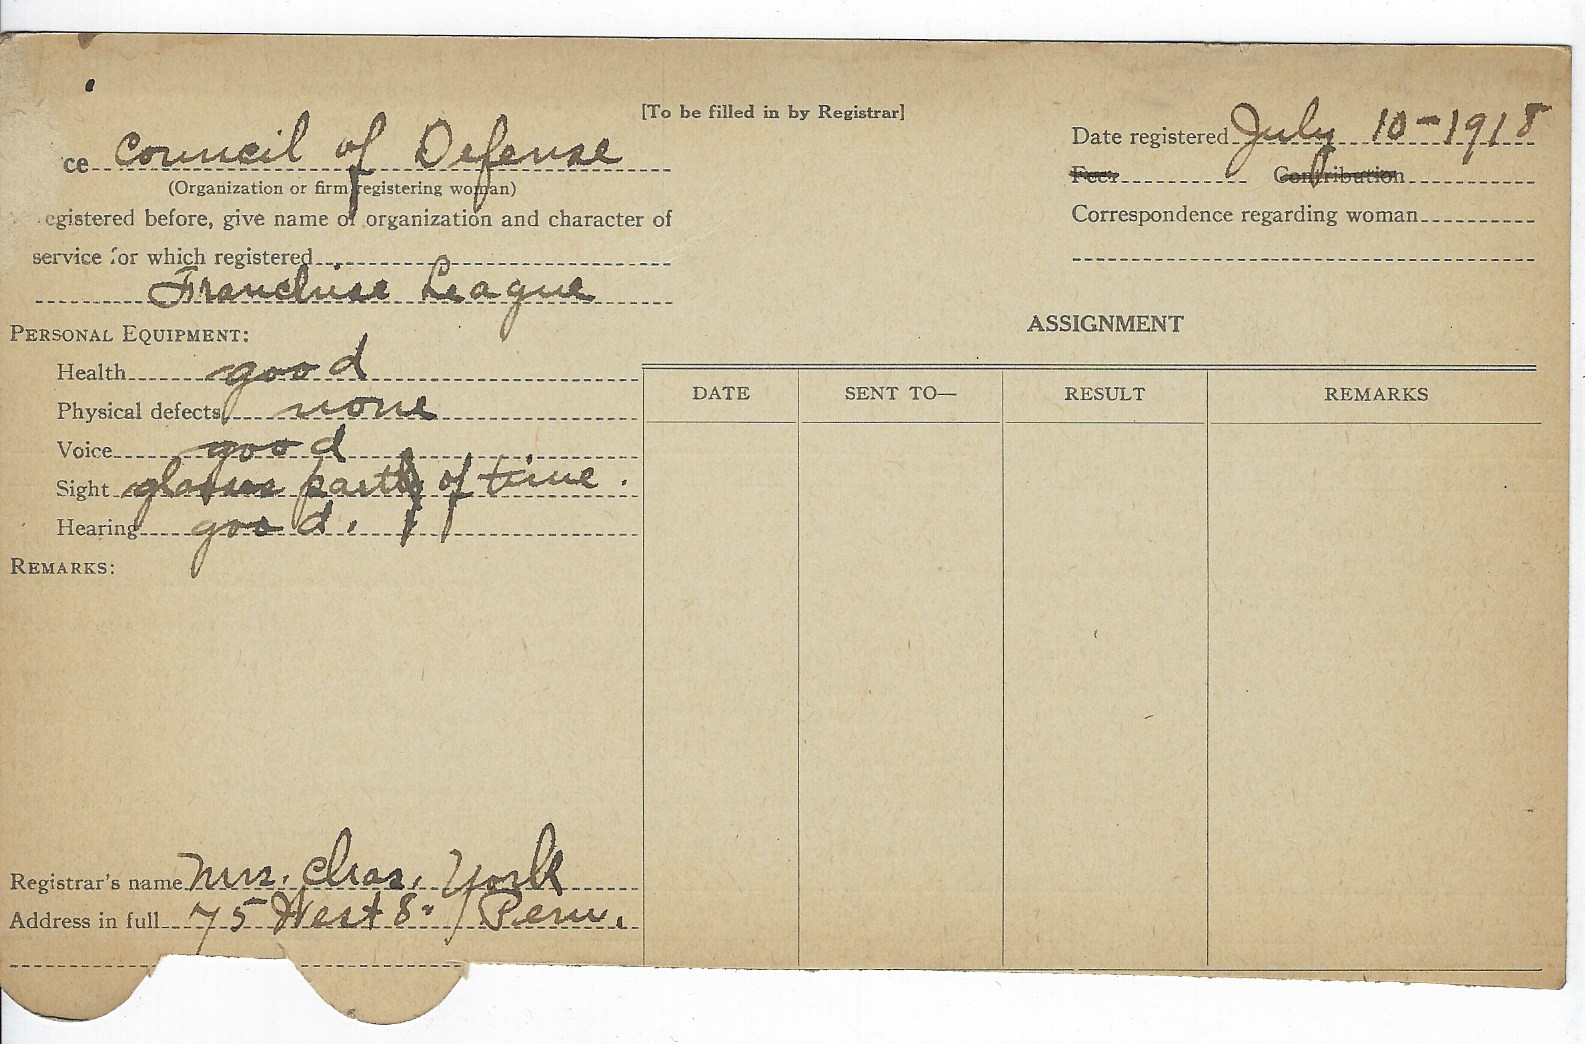 [To be filled in by Registrar]
ce Council of Defense
(Organization or firm registering woman)
egistered before, give name of organization and character of
service for which registered
Franchise League
Date registered July 10-1918
Fee: Contribution
Correspondence regarding woman
PERSONAL EQUIPMENT:
Health good
Physical defects none
Voice good
Sight glasses partly of time.
Hearing good.
REMARKS:
ASSIGNMENT
DATE SENT TO— RESULT REMARKS
Registrar's name Mrs. Chas. York
Address in full 75 West 8" Peru.